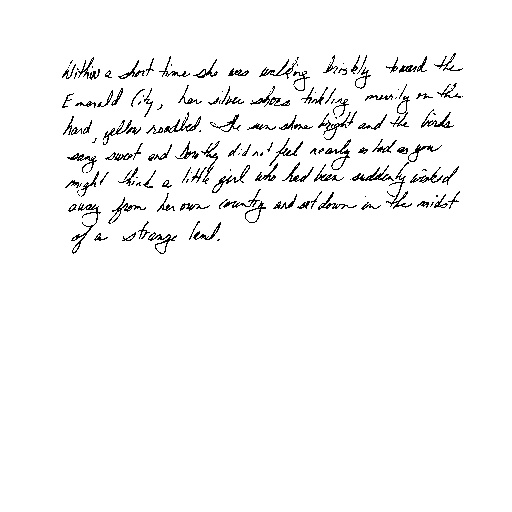 Within a short time she was walking briskly toward the
Emerald City, her silver shoes tinkling merrily on the
hard, yellow roadbed. The sun shone bright and the birds
sang sweet and Dorothy did not feel nearly as bad as you
might think a little girl who had been suddenly whisked
away from her own country and set down in the midst
of a strange land.